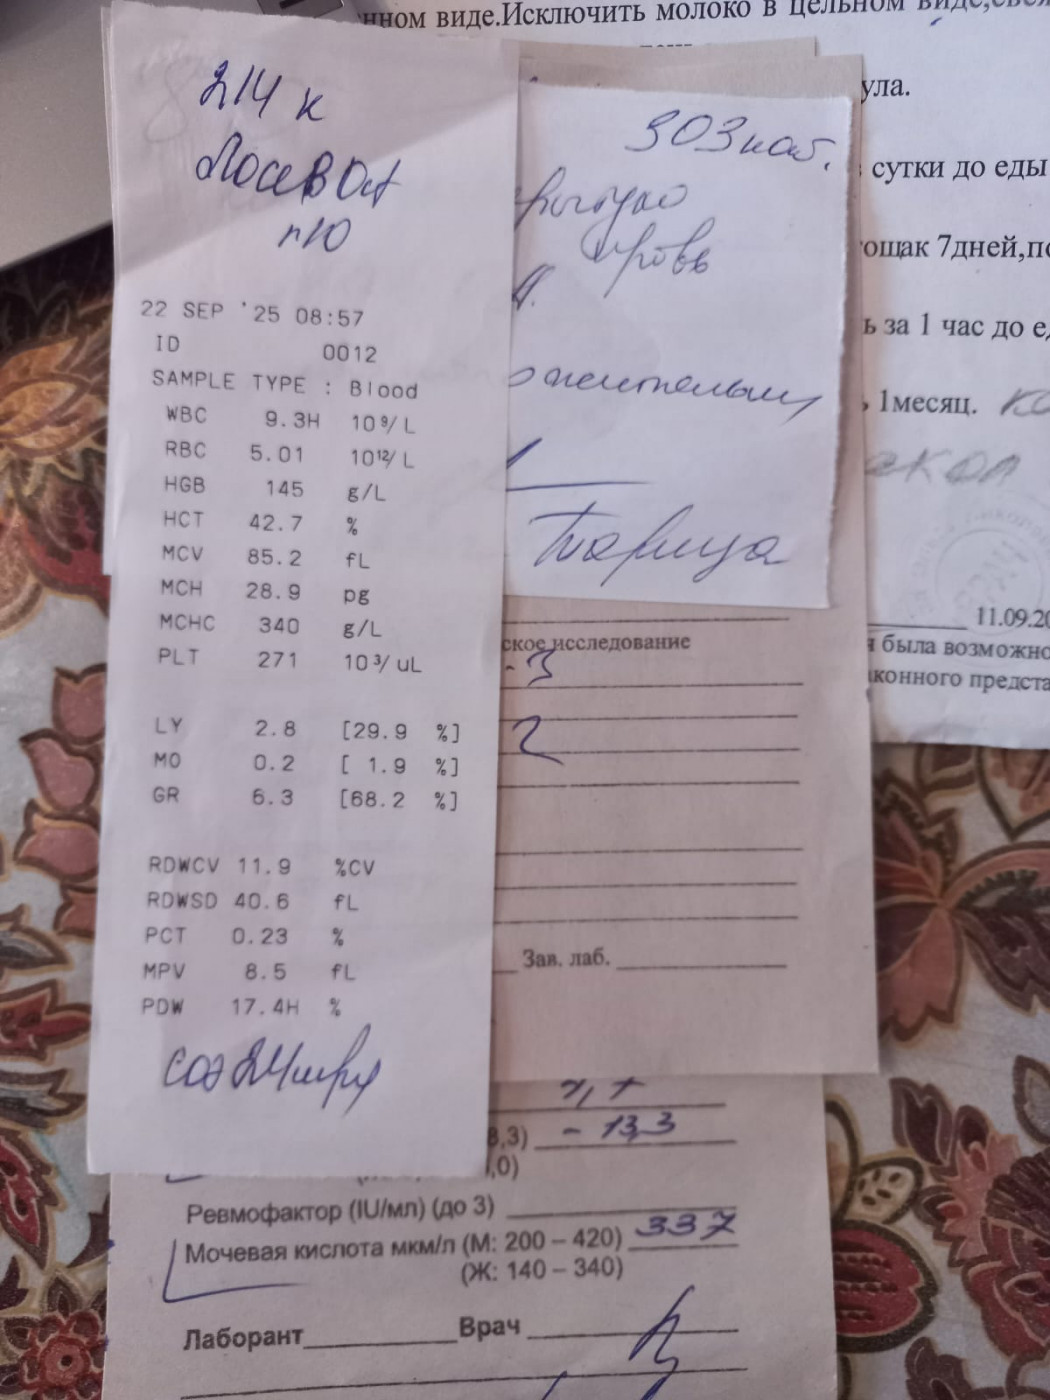 нном виде.Исключить молоко в цельном виде,
ула.
сутки до еды
ощак 7дней,по
ь за 1 час до е
1месяц.
11.09.20
была возможно
конного предста
214 к
п10
22 SEP '25 08:57
ID 0012
SAMPLE TYPE : Blood
WBC 9.3H 10⁹/L
RBC 5.01 10¹²/L
HGB 145 g/L
HCT 42.7 %
MCV 85.2 fL
MCH 28.9 pg
MCHC 340 g/L
PLT 271 10³/uL
LY 2.8 [29.9 %]
MO 0.2 [ 1.9 %]
GR 6.3 [68.2 %]
RDWCV 11.9 %CV
RDWSD 40.6 fL
PCT 0.23 %
MPV 8.5 fL
PDW 17.4H %
303 каб.
кровь
ское исследование
- 3
2
Зав. лаб.
8,3) - 13,3
,0)
Ревмофактор (IU/мл) (до 3)
Мочевая кислота мкм/л (М: 200 – 420) 337
(Ж: 140 – 340)
Лаборант Врач